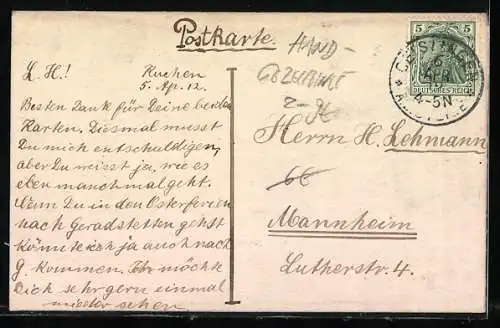 Postkarte.
HAND-
GEZEICHNET
L. H.!
Kuchen
5. Ap. 12.
Besten Dank für Deine beiden
Karten. Diesmal musst
Du mich entschuldigen,
aber Du weisst ja, wie es
eben manchmal geht.
Wenn Du in den Osterferien
nach Geradstetten gehst
könnte ich ja auch nach
G. kommen. Ich möchte
Dich sehr gern einmal
wieder sehen
5 5
DEUTSCHES REICH
GEISLINGEN
APR
4-5N
Herrn H. Lehmann
Mannheim
Lutherstr. 4.